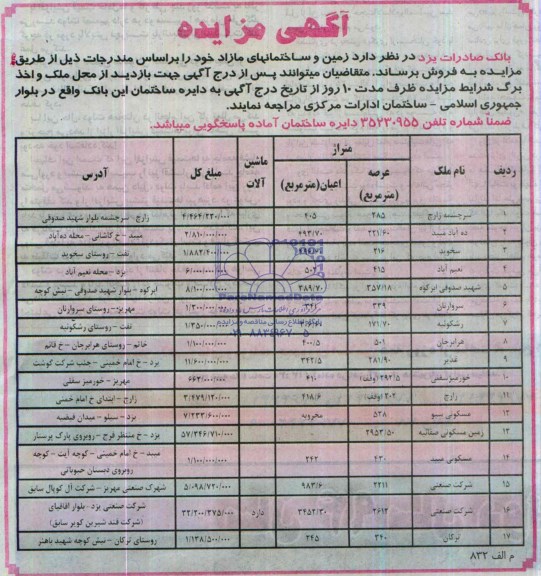 آگهی مزایده
بانک صادرات یزد در نظر دارد زمین و ساختمانهای مازاد خود را براساس مندرجات ذیل از طریق
مزایده به فروش برساند. متقاضیان میتوانند پس از درج آگهی جهت بازدید از محل ملک و اخذ
برگ شرایط مزایده ظرف مدت ۱۰ روز از تاریخ درج آگهی به دایره ساختمان این بانک واقع در بلوار
جمهوری اسلامی - ساختمان ادارات مرکزی مراجعه نمایند.
ضمنا شماره تلفن ۳۵۲۳۰۹۵۵ دایره ساختمان آماده پاسخگویی میباشد.
ردیف نام ملک متراژ عرصه (مترمربع) اعیان(مترمربع) ماشین آلات مبلغ کل آدرس
۱ سرچشمه زارچ ۲۸۵ ۴۰۵ ۴/۴۶۴/۲۳۰/۰۰۰ زارچ- سرچشمه بلوار شهید صدوقی
۲ ده آباد میبد ۲۲۱/۶۰ ۴۹۳/۷۰ ۲/۸۱۰/۰۰۰/۰۰۰ میبد - خ کاشانی - محله ده‌آباد
۳ سخوید ۲۱۶ تفت - روستای سخوید
۴ نعیم آباد ۴۱۵ یزد - محله نعیم آباد
۵ شهید صدوقی ابرکوه ۳۵۷/۱۸ ۳۸۹/۷۰ ۸/۱۰۰/۰۰۰/۰۰۰ ابرکوه - بلوار شهید صدوقی - نبش کوچه
۶ سروانارتان ۳۳۹ مهریز- روستای سروانارتان
۷ رشکوئیه ۱۷۱/۷۰ تفت - روستای رشکوئیه
۸ هرابرجان ۵۰۱ ۴۰۰/۵ ۱/۱۰۰/۰۰۰/۰۰۰ خاتم - روستای هرابرجان - خ قائم
۹ غدیر ۲۸۱/۹۰ ۳۴۲/۵ ۱۱/۶۰۰/۰۰۰/۰۰۰ یزد - خ امام خمینی - جنب شرکت گوشت
۱۰ خورمیزسفلی ۲۹۲/۵(وقف) ۴۱۰ ۶۶۳/۰۰۰/۰۰۰ مهریز - خورمیز سفلی
۱۱ زارچ ۲۰۲(وقف) ۴۱۸/۶ ۳/۴۷۹/۱۲۰/۰۰۰ زارچ - ابتدای خ امام خمینی
۱۲ مسکونی سیو ۵۲۸ مخروبه ۷/۲۳۳/۶۰۰/۰۰۰ یزد - سیلو - میدان فیضیه
۱۳ زمین مسکونی صفائیه ۲۹۵۳/۵۰ ۵۷/۳۴۶/۷۱۰/۰۰۰ یزد - خ منتظر فرج - روبروی پارک پرستار
۱۴ مسکونی میبد ۴۳۰ ۲۴۲ ۱/۱۰۰/۰۰۰/۰۰۰ میبد - خ امام خمینی - کوچه آیت - کوچه
روبروی دبستان
۱۵ شرکت صنعتی ۲۲۱۱ ۹۸۳/۶ ۵/۰۹۸/۷۲۰/۰۰۰ شهرک صنعتی مهریز - شرکت آل کوپال سابق
۱۶ شرکت صنعتی ۲۶۱۲ ۳۴۵۲/۳۰ دارد ۳۲/۲۰۰/۳۷۵/۰۰۰ شرکت صنعتی یزد- بلوار اقاقیای
(شرکت قند شیرین کویر سابق)
۱۷ ترکان ۳۴۰ ۲۴۵ ۱/۱۳۸/۵۰۰/۰۰۰ روستای ترکان - نبش کوچه شهید باهنر
م الف ۸۳۲